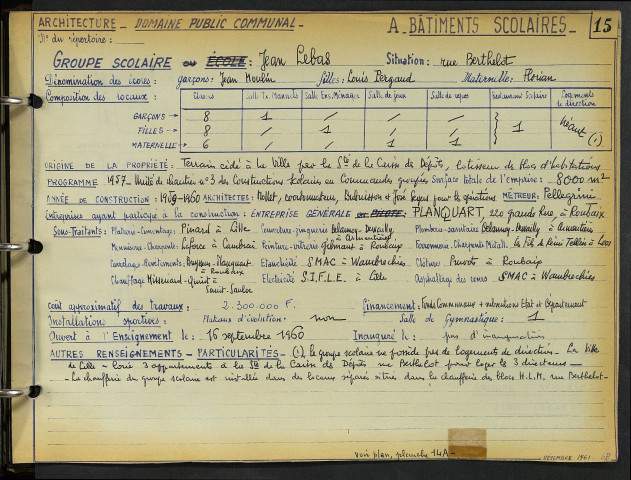 ARCHITECTURE - DOMAINE PUBLIC COMMUNAL - A - BÂTIMENTS SCOLAIRES - 15
N° du répertoire :
GROUPE SCOLAIRE ou ÉCOLE : Jean Lebas Situation : rue Berthelot
Dénomination des écoles : garçons : Jean Moulin filles : Louis Pergaud Maternelle : Florian
Composition des locaux : Classes Salle Tx. Manuels Salle Ens. Ménager Salle de jeux Salle de repos Restaurant Scolaire Logements de direction
GARÇONS → 8 1 / / /
FILLES → 8 / 1 / / 1 Néant (1)
MATERNELLE → 6 / / 1 1
ORIGINE DE LA PROPRIÉTÉ : Terrain cédé à la Ville par la Sté de la Caisse de Dépôts, lotisseur de blocs d'habitations
PROGRAMME 1957 - Unité de chantier n° 3 des Constructions scolaires en Commandes groupées Surface totale de l'emprise : 8000 m²
ANNÉE DE CONSTRUCTION : 1959-1960 ARCHITECTES : Mollet, coordonnateur, Dubuisson et pour les exécutions MÉTREUR : Pellegrin
Entreprises ayant participé à la construction : ENTREPRISE GÉNÉRALE PLANQUART, 220 grande Rue, à Roubaix
Sous-Traitants : Plâtrerie - Cimentage : Pinard à Lille Couverture-zinguerie Delannoy-Dewailly à Armentières Plomberie-sanitaire Delannoy-Dewailly à Armentières
Menuiserie-Charpente Laforce à Cambrai Peinture-vitrerie à Roubaix Ferronnerie - Charpente Métall. Les Fils de Rémi Tellier à Loos
Carrelage - Revêtements : à Roubaix Etanchéité SMAC à Wambrechies Clôtures à Roubaix
Chauffage Missenard-Quint à Saint-Saulve Electricité S.I.F.L.E. à Lille Asphaltage des cours SMAC à Wambrechies
Coût approximatif des travaux : 2.300.000 F. Financement : Fonds Communaux + subventions Etat et Département
Installations sportives : Plateau d'évolution : non Salle de Gymnastique : 1
Ouvert à l'Enseignement le : 16 septembre 1960 Inauguré le : pas d'inauguration
AUTRES RENSEIGNEMENTS - PARTICULARITÉS - (1) le groupe scolaire ne possède pas de logements de direction - La Ville
de Lille a loué 3 appartements à la Sté de la Caisse de Dépôts rue Berthelot pour loger les 3 directeurs -
- La chaufferie du groupe scolaire est installée dans des locaux séparés situés dans la chaufferie des blocs H.L.M. rue Berthelot -
voir plan, planche 14A -
DÉCEMBRE 1961 -